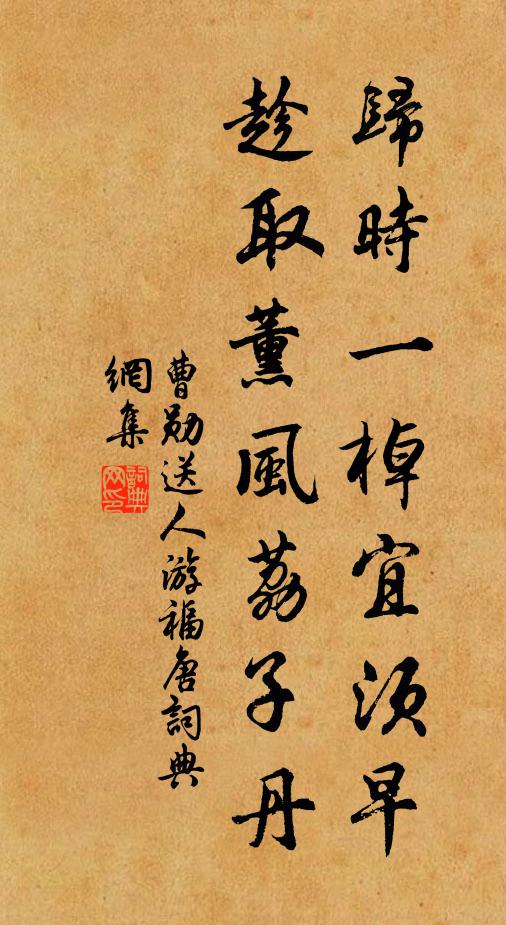 歸時一棹宜須早
趁取薰風荔子丹
曹勛送人游福唐詞典
網集
詞典
网印